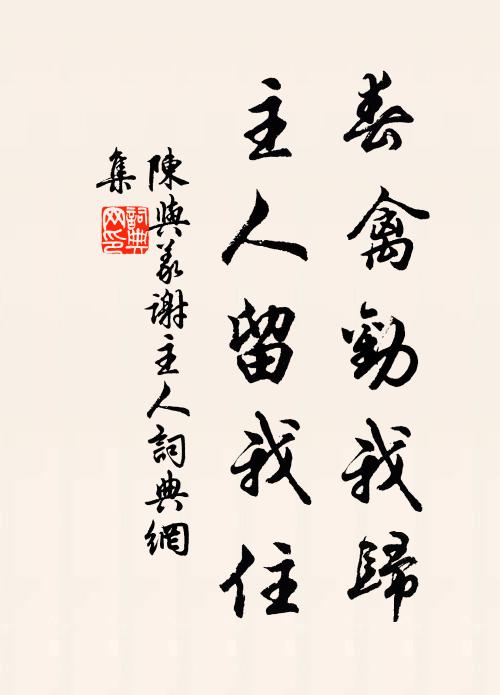 春禽勸我歸
主人留我住
陳與義謝主人詞典網
集
詞典网印